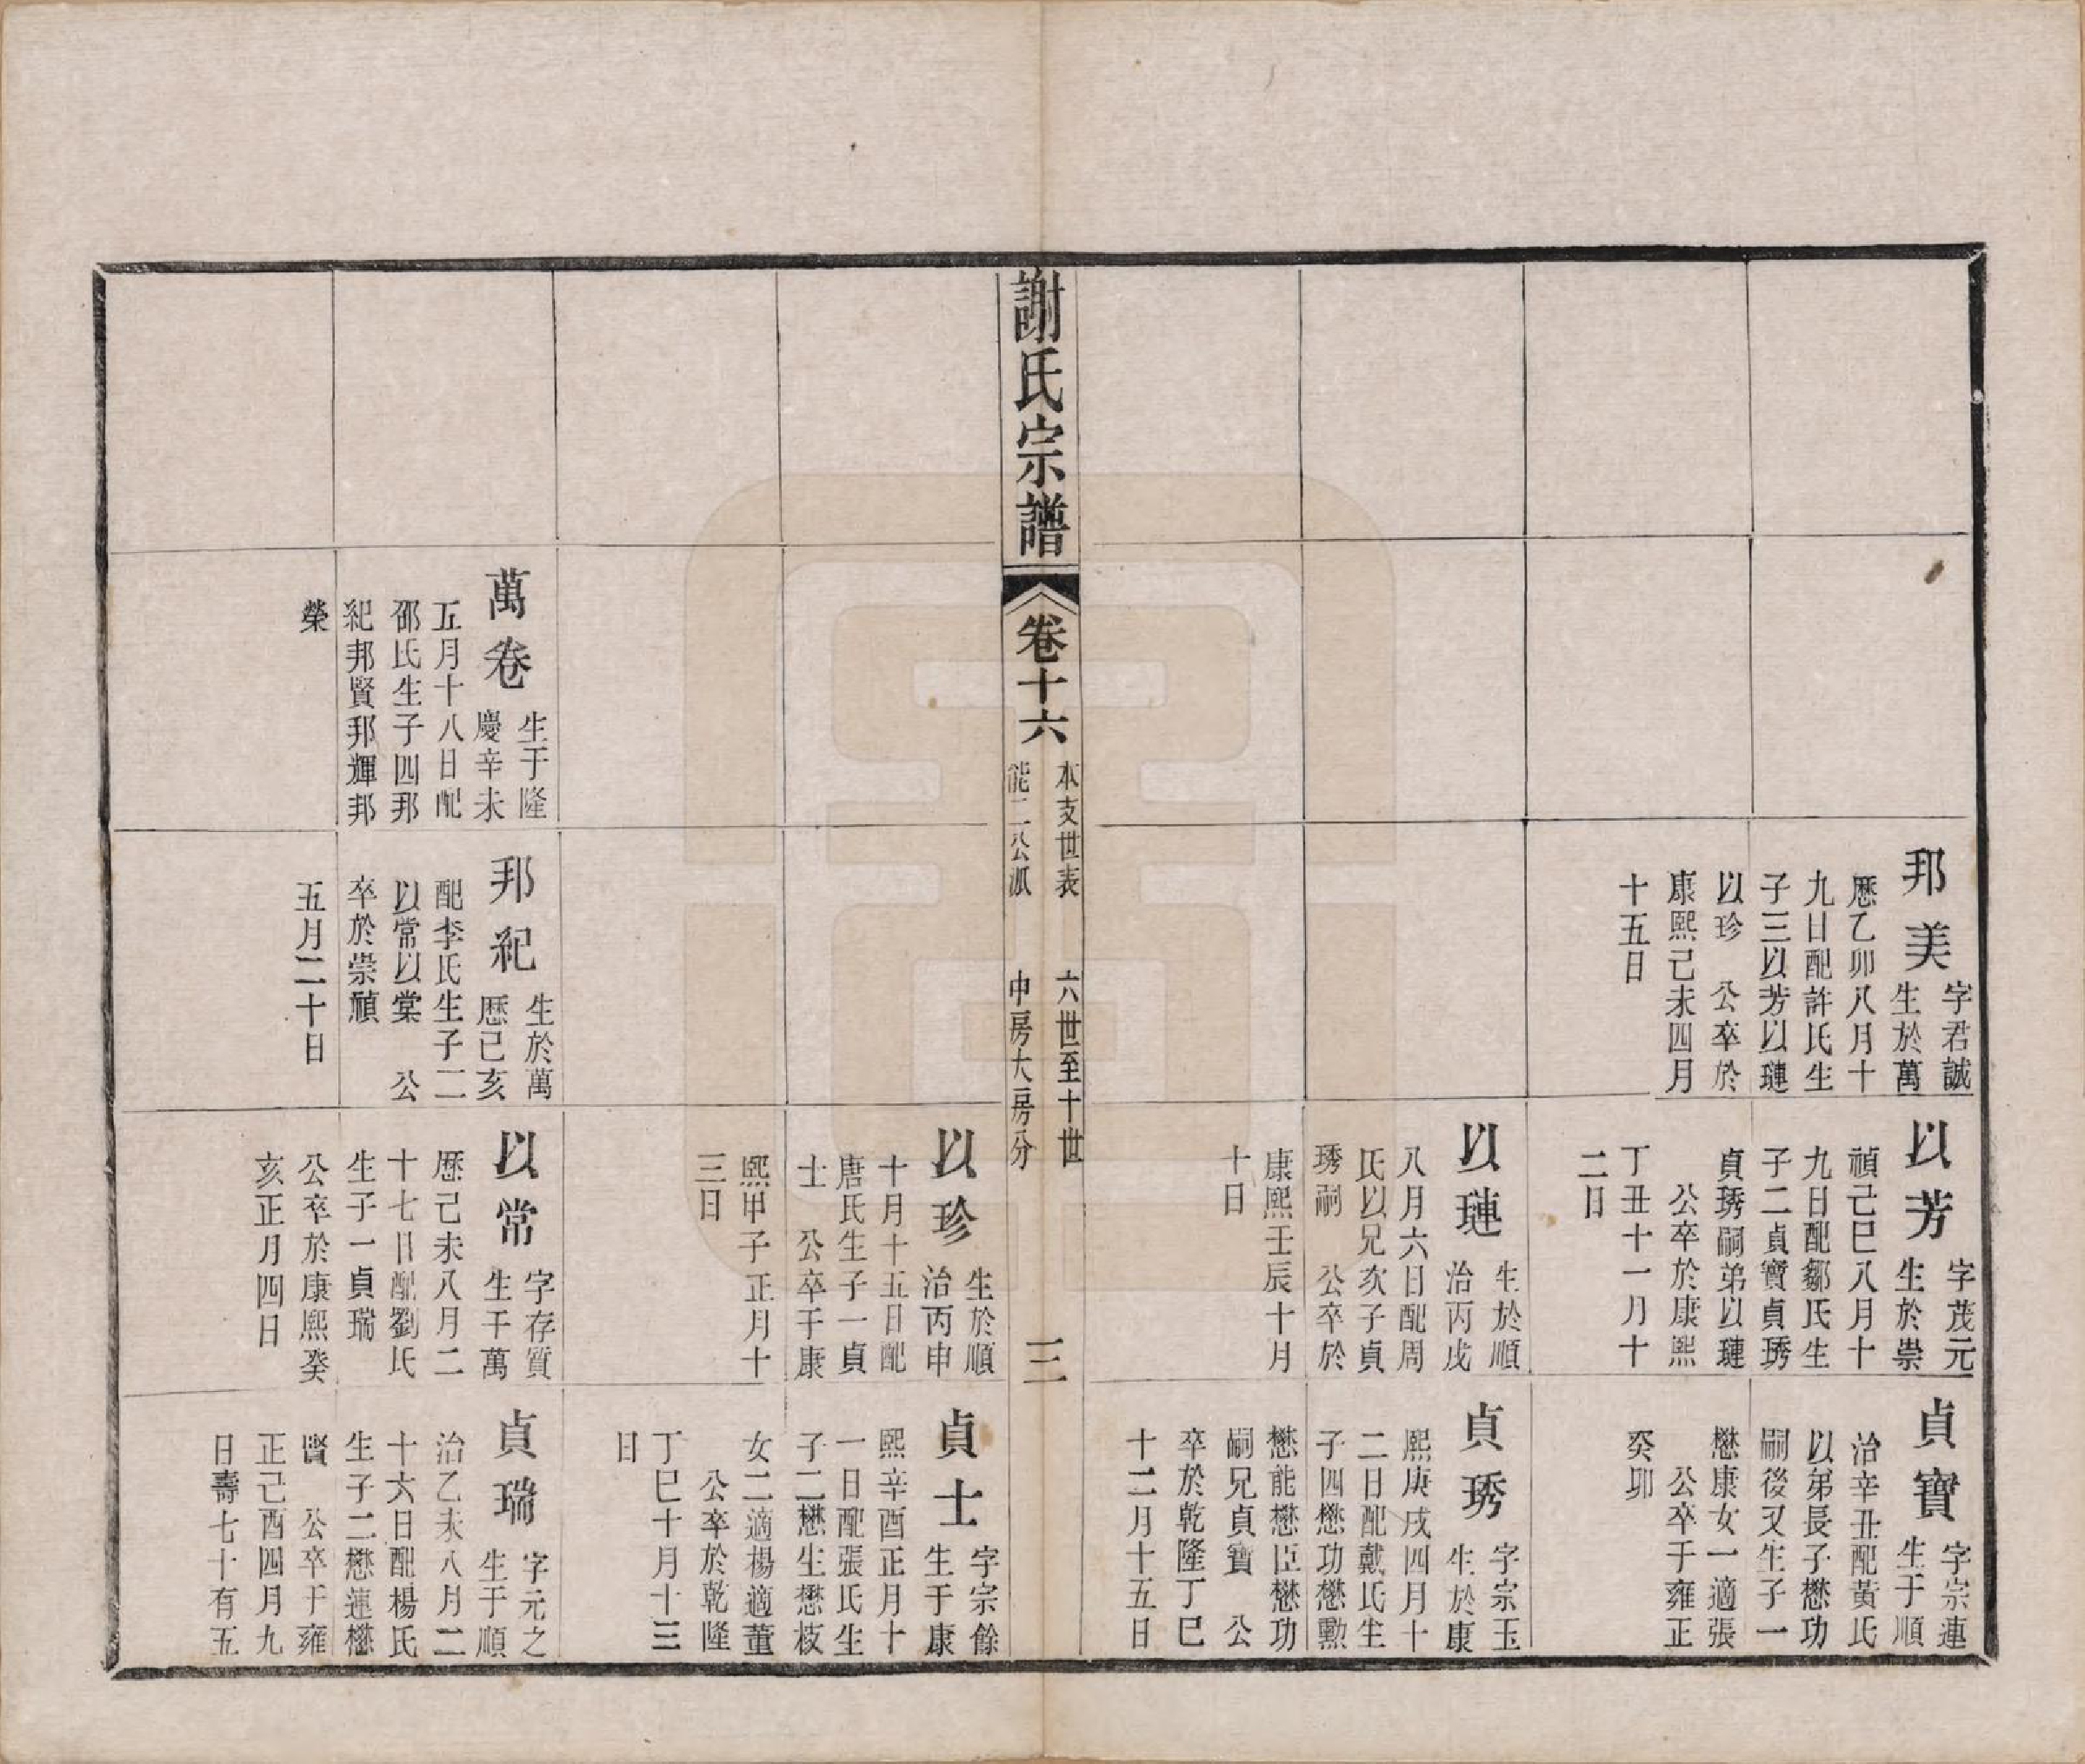 邦美
字君誠
生於萬
厯乙卯八月十
九日配許氏生
子三以芳以璉
以珍　公卒於
康熙己未四月
十五日
以芳
字茂元
生於崇
禎己巳八月十
九日配鄒氏生
子二貞寶貞琇
貞琇嗣弟以璉
公卒於康熙
丁丑十一月十
二日
貞寶
字宗連
生于順
治辛丑配黃氏
以弟長子懋功
嗣後又生子一
懋康女一適張
公卒于雍正
癸卯
以璉
生於順
治丙戌
八月六日配周
氏以兄次子貞
琇嗣　公卒於
康熙壬辰十月
十日
貞琇
字宗玉
生於康
熙庚戌四月十
二日配戴氏生
子四懋功懋勳
懋能懋臣懋功
嗣兄貞寶　公
卒於乾隆丁巳
十二月十五日
謝氏宗譜
卷十六
本支世表
能二公派
六世至十世
中房大房分
三
以珍
生於順
治丙申
十月十五日配
唐氏生子一貞
士　公卒于康
熙甲子正月十
三日
貞士
字宗餘
生于康
熙辛酉正月十
一日配張氏生
子二懋生懋枝
女二適楊適董
公卒於乾隆
丁巳十月十三
日
萬卷
生于隆
慶辛未
五月十八日配
邵氏生子四邦
紀邦賢邦輝邦
榮
邦紀
生於萬
厯己亥
配李氏生子二
以常以棠　公
卒於崇禎
五月二十日
以常
字存質
生于萬
厯己未八月二
十七日配劉氏
生子一貞瑞
公卒於康熙癸
亥正月四日
貞瑞
字元之
生于順
治乙未八月二
十六日配楊氏
生子二懋蓮懋
賢　公卒于雍
正己酉四月九
日壽七十有五